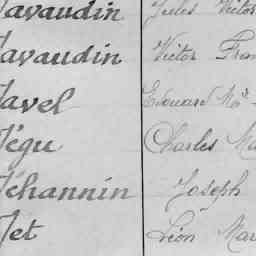 Javaudin Jules Victor
Javaudin Victor Fran
Javel Edouard Mie
Jégu Charles Ma
Jéhannin Joseph
Jet Léon Mar